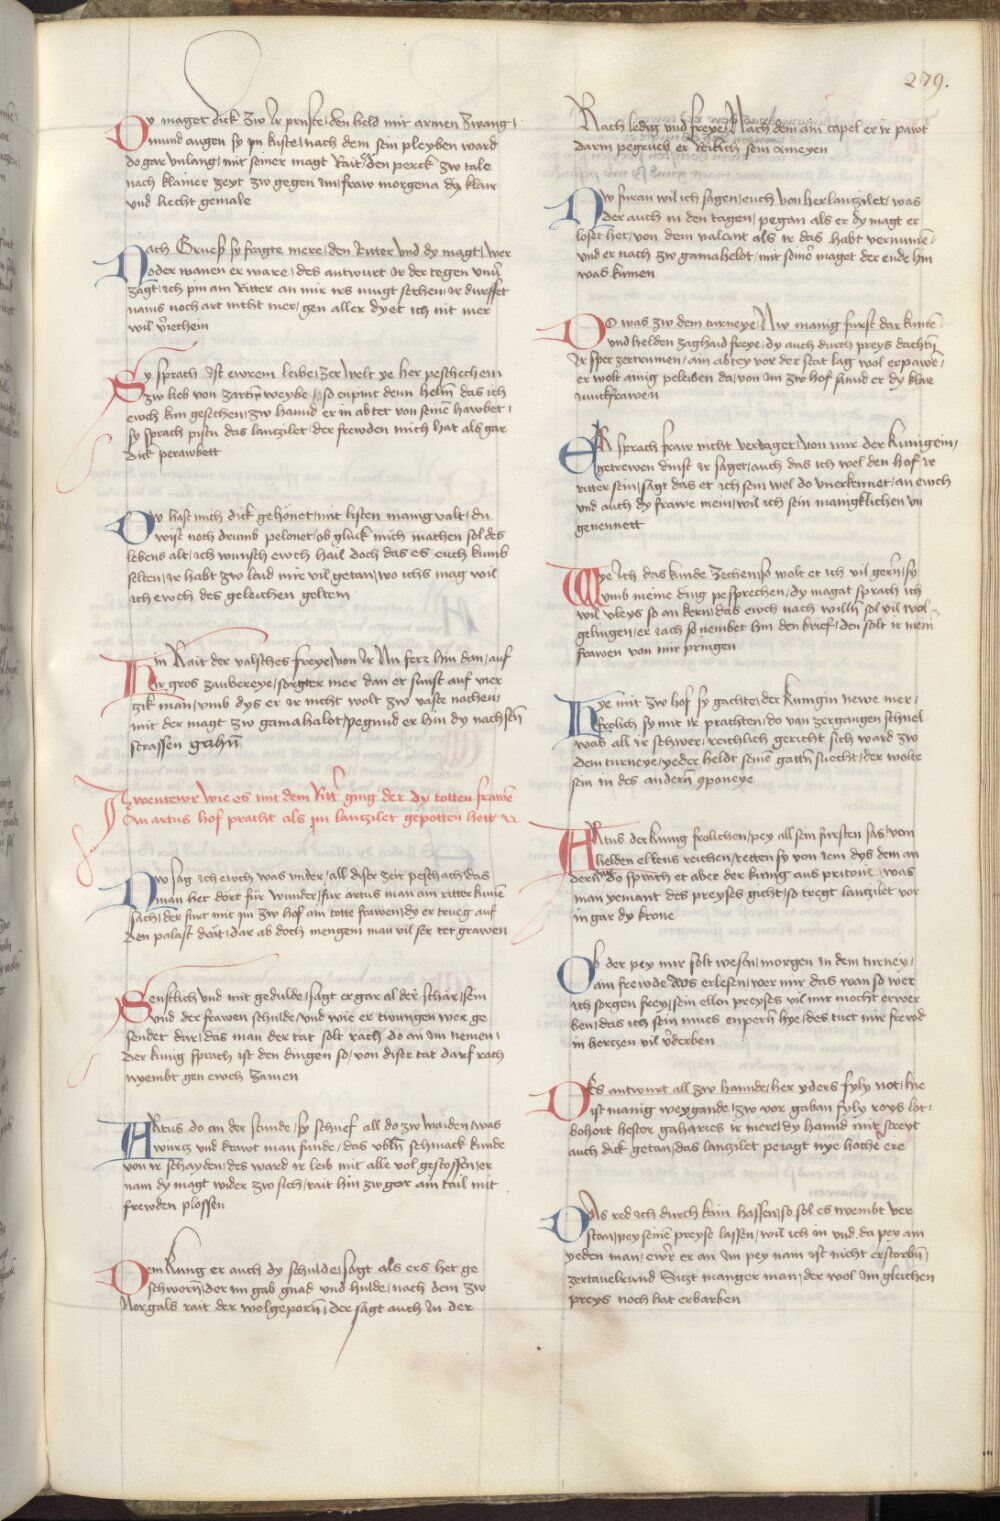 279.
Dy mager dick zw Ir prusste / den held mit armen zwang /
mund augen sy jm kusste / nach dem sein pleyben ward
do gar vnlang / mit seiner magt Rait den perck zw tale
nach klainer zeyt zw gegen im / fraw morgena dy klar
vnd liecht gemale
Nach Grues sy fragte mere / den Ritter vnd dy magt / wer
oder wanen er ware / des antwurt Ir der tegen vnuer
zagt / ich pin ain Ritter an mir irs mugt sechen / ir durffet
nams noch art nicht mer / gen aller dyet ich nit mer
wil veriechein
Sy sprach ist ewrem leibe / zer welt ye her peschechem
zw lieb von zartin weybe / so enpint denn helm das ich
ewch kun gesechen / zw hannd er in ab tet von seinē hawbet /
sy sprach pistu das lanczilet / der frewden mich hat als gar
dick perawbett
Dw hast mich dick gehönet / mit listen manig valt / du
wirst noch drumb pelonet / ob glück mich mathen sol des
lebens alt / ich wunsch ewch hail doch das es euch kumb
selten / ir habt zw laid mir vil getan / wo ichs mag wil
ich ewch des geleichen geltem
Hin Rait der valsches freye / von Ir Nu ferr hin dan / auf
Ir gros zaubereye / sorgter mer dan er sunst auf vier
zik man / vmb dys er ir nicht wolt zw vaste nachen /
mit der magt zw gamahalot / pegund er hin dy nachsten
strassen gahn
Awentewr wie es mit dem Ritter ging der dy totten frawē
an artus hof pracht als jm lanczilet gepotten hett
Nw sag ich ewch was vnder / all diser zeit peschach / das
man het dort für wunder / fur artus man ain ritter kumē
sach / der furt mit jm zw hof ain totte frawen / dy er trueg auf
den palast drat / dar ab doch mengem man vil ser tet grawen
Senftlich vnd mit gedulde / sagt er gar al der schar / sein
vnd der frawen schulde / vnd wie er twungen wer ge
sendet dar / das man der tat solt rach do an im nemen /
der kunig sprach ist den dingen so / von diser tat darf rach
nyembt gen ewch zamen
Artus do an der stunde / sy schuef all do zw waiden / was
wurcz vnd krawt man funde / das vbln schmack kunde
von ir schayden / des ward ir leib mit alle vol gestossen / er
nam dy magt wider zw sich / rait hin zw gor ain tail mit
frewden plossen
Dem kunig er auch dy schulde / sagt als ers het ge
schworn / der im gab gnad vnd hulde / nach dem zw
Norgals rait der wolgeporn / der sagt auch in der
Rach ledig vnd freye / Nach dem ain capel er ir pawt
darin pegrueb er Reilich sein ameyen
Nw furan wil ich sagen / euch von her lanczilet / was
der auch in den tagen / pegan als er dy magt er
loset het / von dem valant als ir das habt vernumē /
vnd er nach zw gamaheldt / mit seiner maget der ende hin
was kumen
Do was zw dem turneye / Nw manig furst dar kumē
vnd helden zaghaid freye / dy auch durch preys dachtn
Ir sper zertrumen / ain abtey vor der stat lag wol erpawē /
er wolt ainig peleiben da / von im zw hof sannd er dy klar
iunckfrawen
Er sprach fraw nicht verzaget / von mir der kunigein /
getrewen dinst ir saget / auch das ich wel den hof ir
ritter sein / sagt das et ich sein wel do vnerkennet / an ewch
vnd auch dy frawe mein / wil ich sein manigklichen vn
genennett
Wye ich das kunde zechen / so wolt et ich vil gern / sy
vmb meine ding pesprechen / dy magat sprach ich
wil vleys so an kern / das ewch nach willn sol vil wol
gelingen / er iach so nembet hin den brief / den solt ir mein
frawen von mir pringen
Hye mit zw hof sy gachte / der kunigin newe mer /
frolich sy mit ir prachten / do van zergangen schnel
was all ir schwer / reichlich gericht sich ward zw
dem turneye / yeder heldt seinē gattn suecht / der wolte
sein in des andern conpaneye
Artus der kunig frolichen / pey all sein fursten sas / vom
helden ellens reichen / retten sy von iem dys dem an
dern das do sprach et aber der kunig aus pritoni / was
man yemant des preyses gicht / so tregt lanczilet vor
in gar dy krone
Ob der pey mir solt wesen / morgen in dem turney /
ain frewde aus erlesen / wer mir das wan so wer
ich sorgen frey / sein ellen preyses vil mir mocht erwer
ben / das ich sein mues enpern hye / des tuet mir frewd
in herczen vil verderben
Des antwurt all zw hannde / her yders fyly not / hie
ist manig weygande / zw vor gaban fyly roys lot /
bohort hestor gaharies ir mere / dy hannd mit streyt
auch dick getan / das lanczilet peragt nye hoche ere
Das red ich durch kain hassen / so sol es nyembt ver
stan / pey seinē preyse lassen / wil ich in vnd da pey ain
yeden man / ewr er an im pey nam ist nicht erstorbn /
zertauelrund Siczt manger man / der wol im gleichen
preys noch hat erbarben